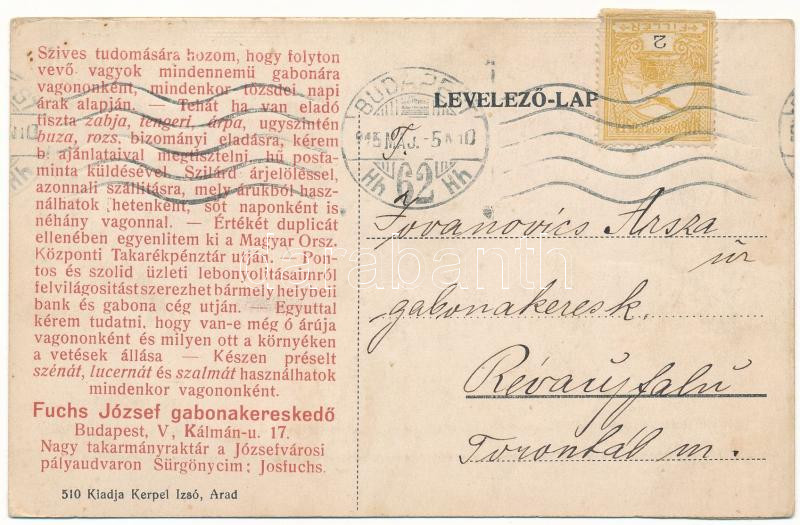 Szives tudomására hozom, hogy folyton
vevő vagyok mindennemü gabonára
vagononként, mindenkor tőzsdei napi
árak alapján. — Tehát ha van eladó
tiszta zabja, tengeri, árpa, ugyszintén
buza, rozs, bizományi eladásra, kérem
b. ajánlataival megtisztelni, hű posta-
minta küldésével. Szilárd árjelöléssel,
azonnali szállitásra, mely árukból hasz-
nálhatok hetenként, sőt naponként is
néhány vagonnal. — Értékét duplicát
ellenében egyenlitem ki a Magyar Orsz.
Központi Takarékpénztár utján. — Pon-
tos és szolid üzleti lebonyolitásaimról
felvilágositást szerezhet bármely helybeli
bank és gabona cég utján. — Egyuttal
kérem tudatni, hogy van-e még ó árúja
vagononként és milyen ott a környéken
a vetések állása — Készen préselt
szénát, lucernát és szalmát használhatok
mindenkor vagononként.
Fuchs József gabonakereskedő
Budapest, V, Kálmán-u. 17.
Nagy takarmányraktár a Józsefvárosi
pályaudvaron Sürgönycim: Josfuchs.
510 Kiadja Kerpel Izsó, Arad
LEVELEZŐ-LAP
BUDAPEST
915 MÁJ. -5
62
Hh Hh
T.
2
FILLÉR
Jovanovics Arsza
úr
gabonakeresk.
Révaujfalu
Torontál m.
Darabanth